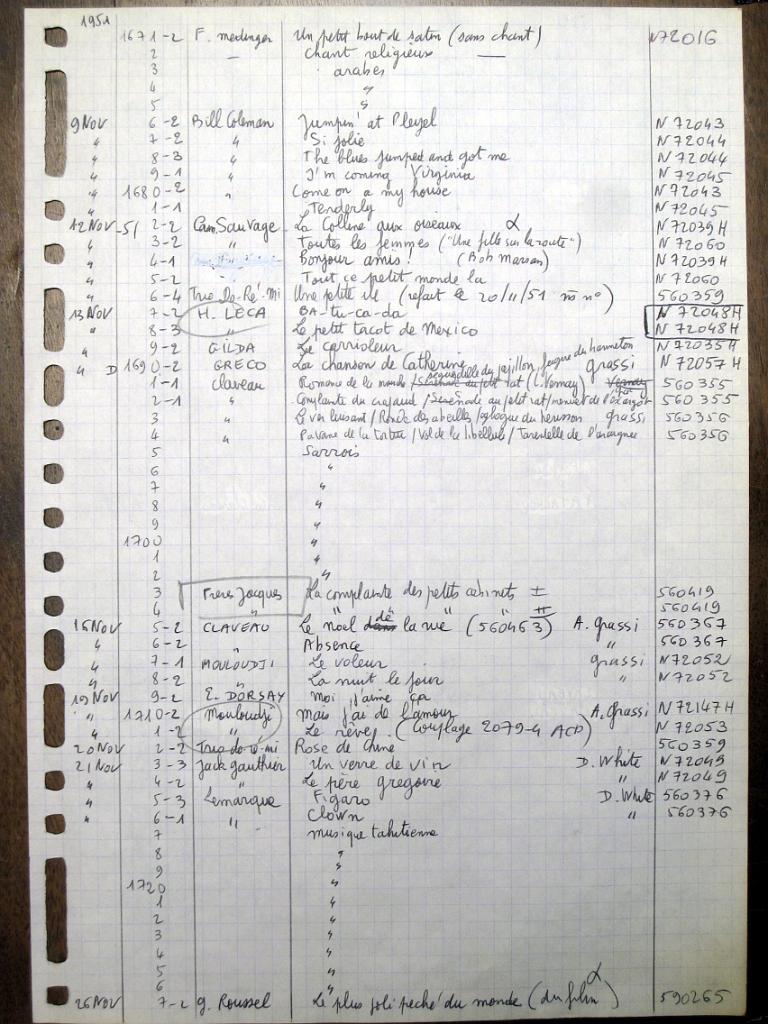 1951
1671-2 F. medinger Un petit bout de satin (sans chant) N72016
2 — chant religieux —
3 arabes
4 "
5 "
9 Nov 6-2 Bill Coleman Jumpin' at Pleyel N 72043
" 7-2 " Si jolie N 72044
" 8-3 " The blues jumped and got me N 72044
" 9-1 " I'm coming Virginia N 72045
" 1680-2 " Come on a my house N 72043
" 1-1 Tenderly N 72045
12 Nov-51 2-2 Cam. Sauvage La Colline aux oiseaux α N 72039 H
" 3-2 " Toutes les femmes ("Une fille sur la route") N 72060
" 4-1 Bonjour amis! (Bob Marson) N 72039 H
" 5-2 Tout ce petit monde la N 72060
" 6-4 Trio Do-Ré-Mi Une petite ile (refait le 20/11/51 m n°) 560359
13 Nov 7-2 H. LECA BA-tu-ca-da N 72048 H
" 8-3 " Le petit tacot de Mexico N 72048 H
" 9-2 GILDA Le carrioleur N 72035 H
" D 1690-2 GRECO La chanson de Catherine grassi N 72057 H
1-1 Claveau Romance de la mouche / sérénade au petit rat 560 355
2-1 " Complainte du crapaud / Sérénade au petit rat / menuet de l'escargot 560 355
3 " Le ver luisant / Ronde des abeilles / eglogue du herisson grassi 560 356
4 " Pavane de la tortue / Vol de la libellule / Tarentelle de l'araignée 560 356
5 Sarrois
6 "
7 "
8 "
9 "
1700 "
1 "
2 "
3 Freres Jacques La complainte des petits cabinets I 560419
4 " " " " II 560419
16 Nov 5-2 CLAVEAU Le noel dans dé la rue (560463) A. grassi 560367
" 6-2 " Absence " 560 367
" 7-1 MOULOUDJI Le voleur grassi N72052
" 8-2 " La nuit le jour " N72052
19 Nov 9-2 E. DORSAY Moi j'aime ça
" 1710-2 Mouloudji Mais j'ai de l'amour A. Grassi N 72147 H
" 1-2 " Le rêve (couplage 2079-4 ACP) N 72053
20 Nov 2-2 Trio do ré-mi Rose de Chine 560359
21 Nov 3-3 Jack gauthier Un verre de vin D. White N 72049
" 4-2 " Le père gregoire " N 72049
" 5-3 Lemarque Figaro D. White 560376
" 6-1 " Clown " 560376
7 musique tahitienne
8 "
9 "
1720 "
1 "
2 "
3 "
4 "
5 "
6 "
26 Nov 7-2 g. Roussel Le plus joli peché du monde (du film α) 590265